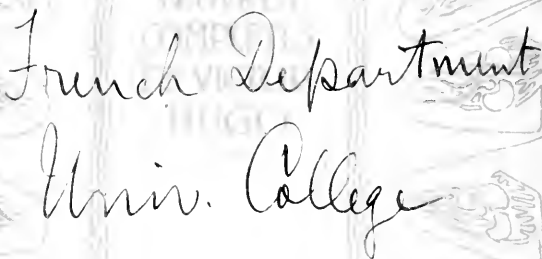 French Department
Univ. College